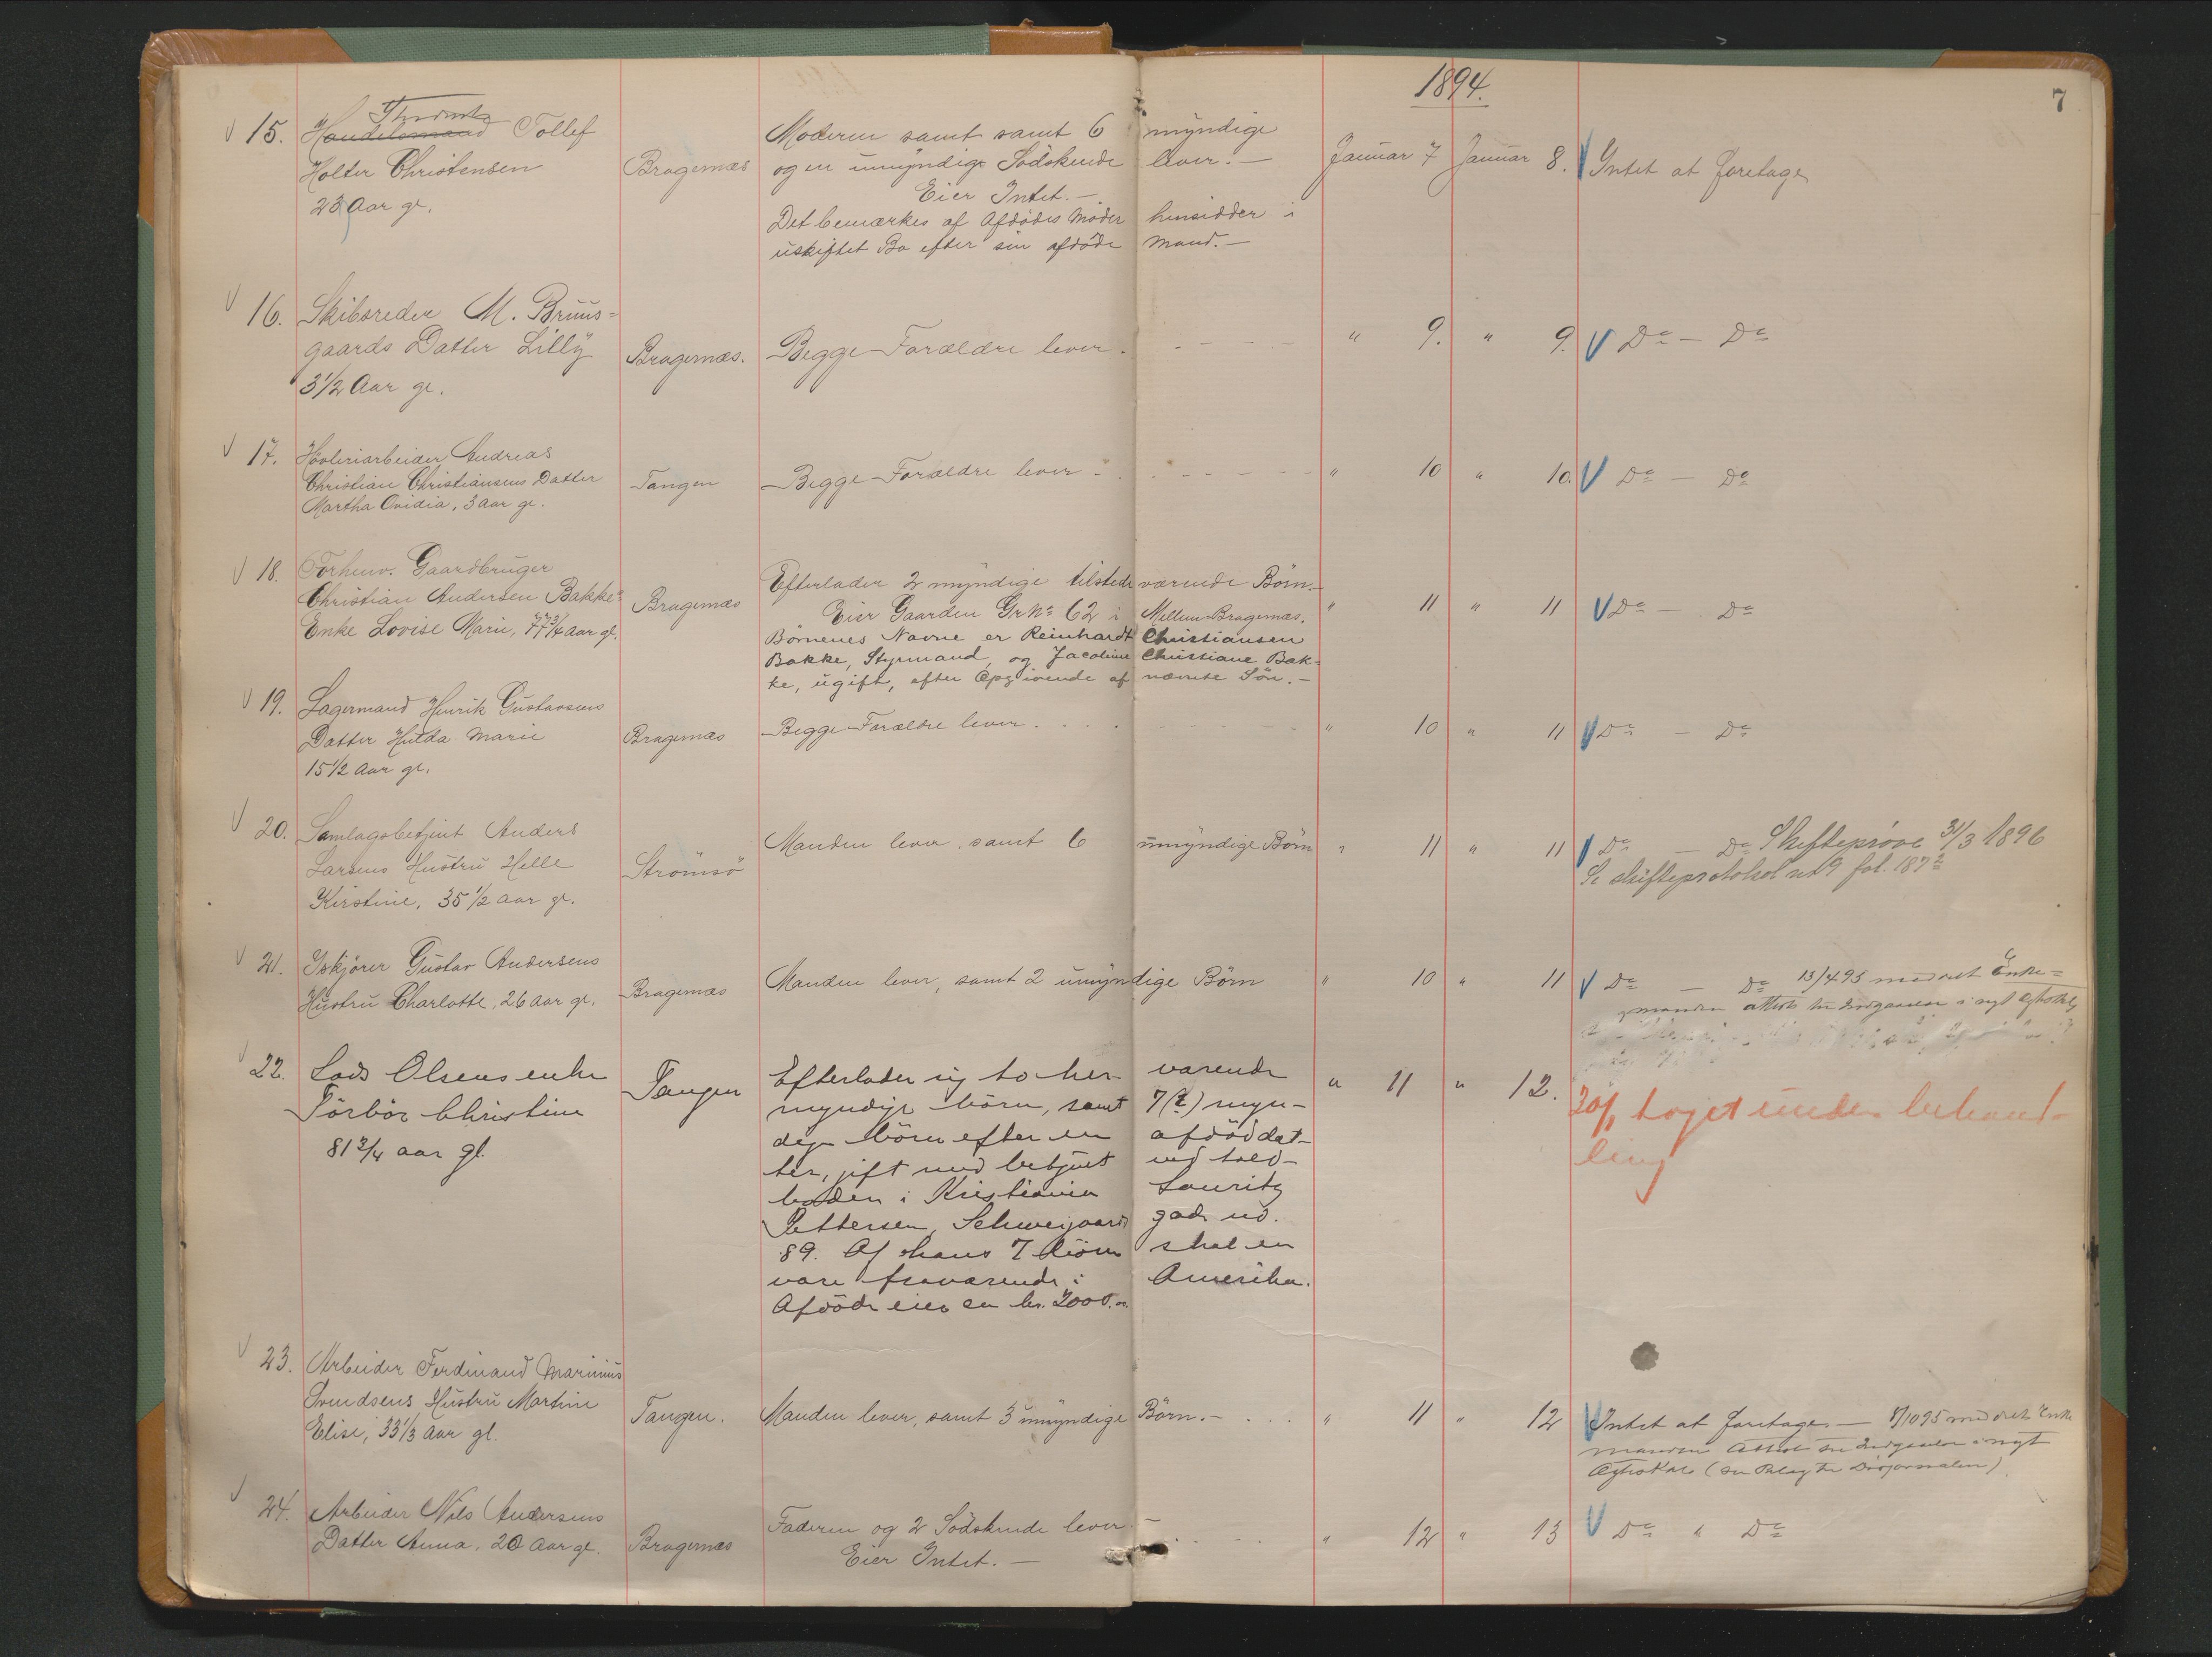 1894.
7
15. Handelsmand Tollef
Holter Christensen
23 Aar gl.
Bragernæs
Moderen samt samt 6 myndige
og en umyndig Södskende lever. —
Eier Intet. —
Det bemærkes af Afdödes Moder hensidder i
uskiftet Bo efter sin afdöde Mand. —
Januar 7 Januar 8. Intet at foretage
16. Skibsreder M. Bruus-
gaards Datter Lilly
3 1/2 Aar gl.
Bragernæs.
Begge Forældre lever.
" 9. " 9. Do — Do
17. Høvleriarbeider Andreas
Christian Christiansens Datter
Martha Ovidia, 3 Aar gl.
Tangen
Begge Forældre lever
" 10 " 10. Do — Do
18. Forhenv. Gaardbruger
Christian Andersen Bakkes
Enke Lovise Marie, 77 3/4 Aar gl.
Bragernæs
Efterlader 2 myndige tilstedeværende Börn. —
Eier Gaarden Gr No 62 i Mellem Bragernæs.
Börnenes Navne er Reinhardt Christiansen
Bakke, Styrmand, og Jacobine Christiane Bak-
ke, ugift, efter Opgivende af nævnte Sön. —
" 11 " 11 Do — Do
19. Lagermand Henrik Gustavsens
Datter Hulda Marie
15 1/2 Aar gl.
Bragernæs
Begge Forældre lever.
" 10 " 11 Do — Do
20. Samlagsbetjent Anders
Larsens Hustru Helle
Kirstine, 35 1/2 Aar gl.
Strömsö
Manden lever, samt 6 umyndige Börn
" 11 " 11 Do — Do Skifteprøve 31/3 1896
Se skifteprotokol nt 9 fol. 187
21. Iskjörer Gustav Andersens
Hustru Charlotte, 26 Aar gl.
Bragernæs
Manden lever, samt 2 umyndige Börn
" 10 " 11 Do — Do 13/4 95 meddelt Enke-
manden attest til Indgaaelse i nyt Ægteskab
22. Lods Olsens enke
Törbör Christine
81 3/4 aar gl.
Tangen
Efterlader sig to her varende
myndige börn, samt 7 (?) myn-
dige börn efter en afdöd dat-
ter, gift med betjent ved told-
boden i Kristiania Lauritz
Pettersen, Schweigaards gade no.
89. Af hans 7 börn skal en
være fraværende i Amerika.
Afdöde eier ca kr. 2000.-
" 11 " 12.
taget under behand-
ling
23. Arbeider Ferdinand Marinius
Svendsens Hustru Martine
Elise, 33 1/3 Aar gl.
Tangen.
Manden lever, samt 3 umyndige Börn. —
" 11 " 12 Intet at foretage. — 8/10 95 meddelt Enke
manden Attest om Indgaaelse i nyt
Ægteskab (se Bilag til Dödsjournalen)
24. Arbeider Nils Andersens
Datter Anna, 20 Aar gl.
Bragernæs
Faderen og 2 Södskende lever. —
Eier Intet. —
" 12 " 13 Do " Do